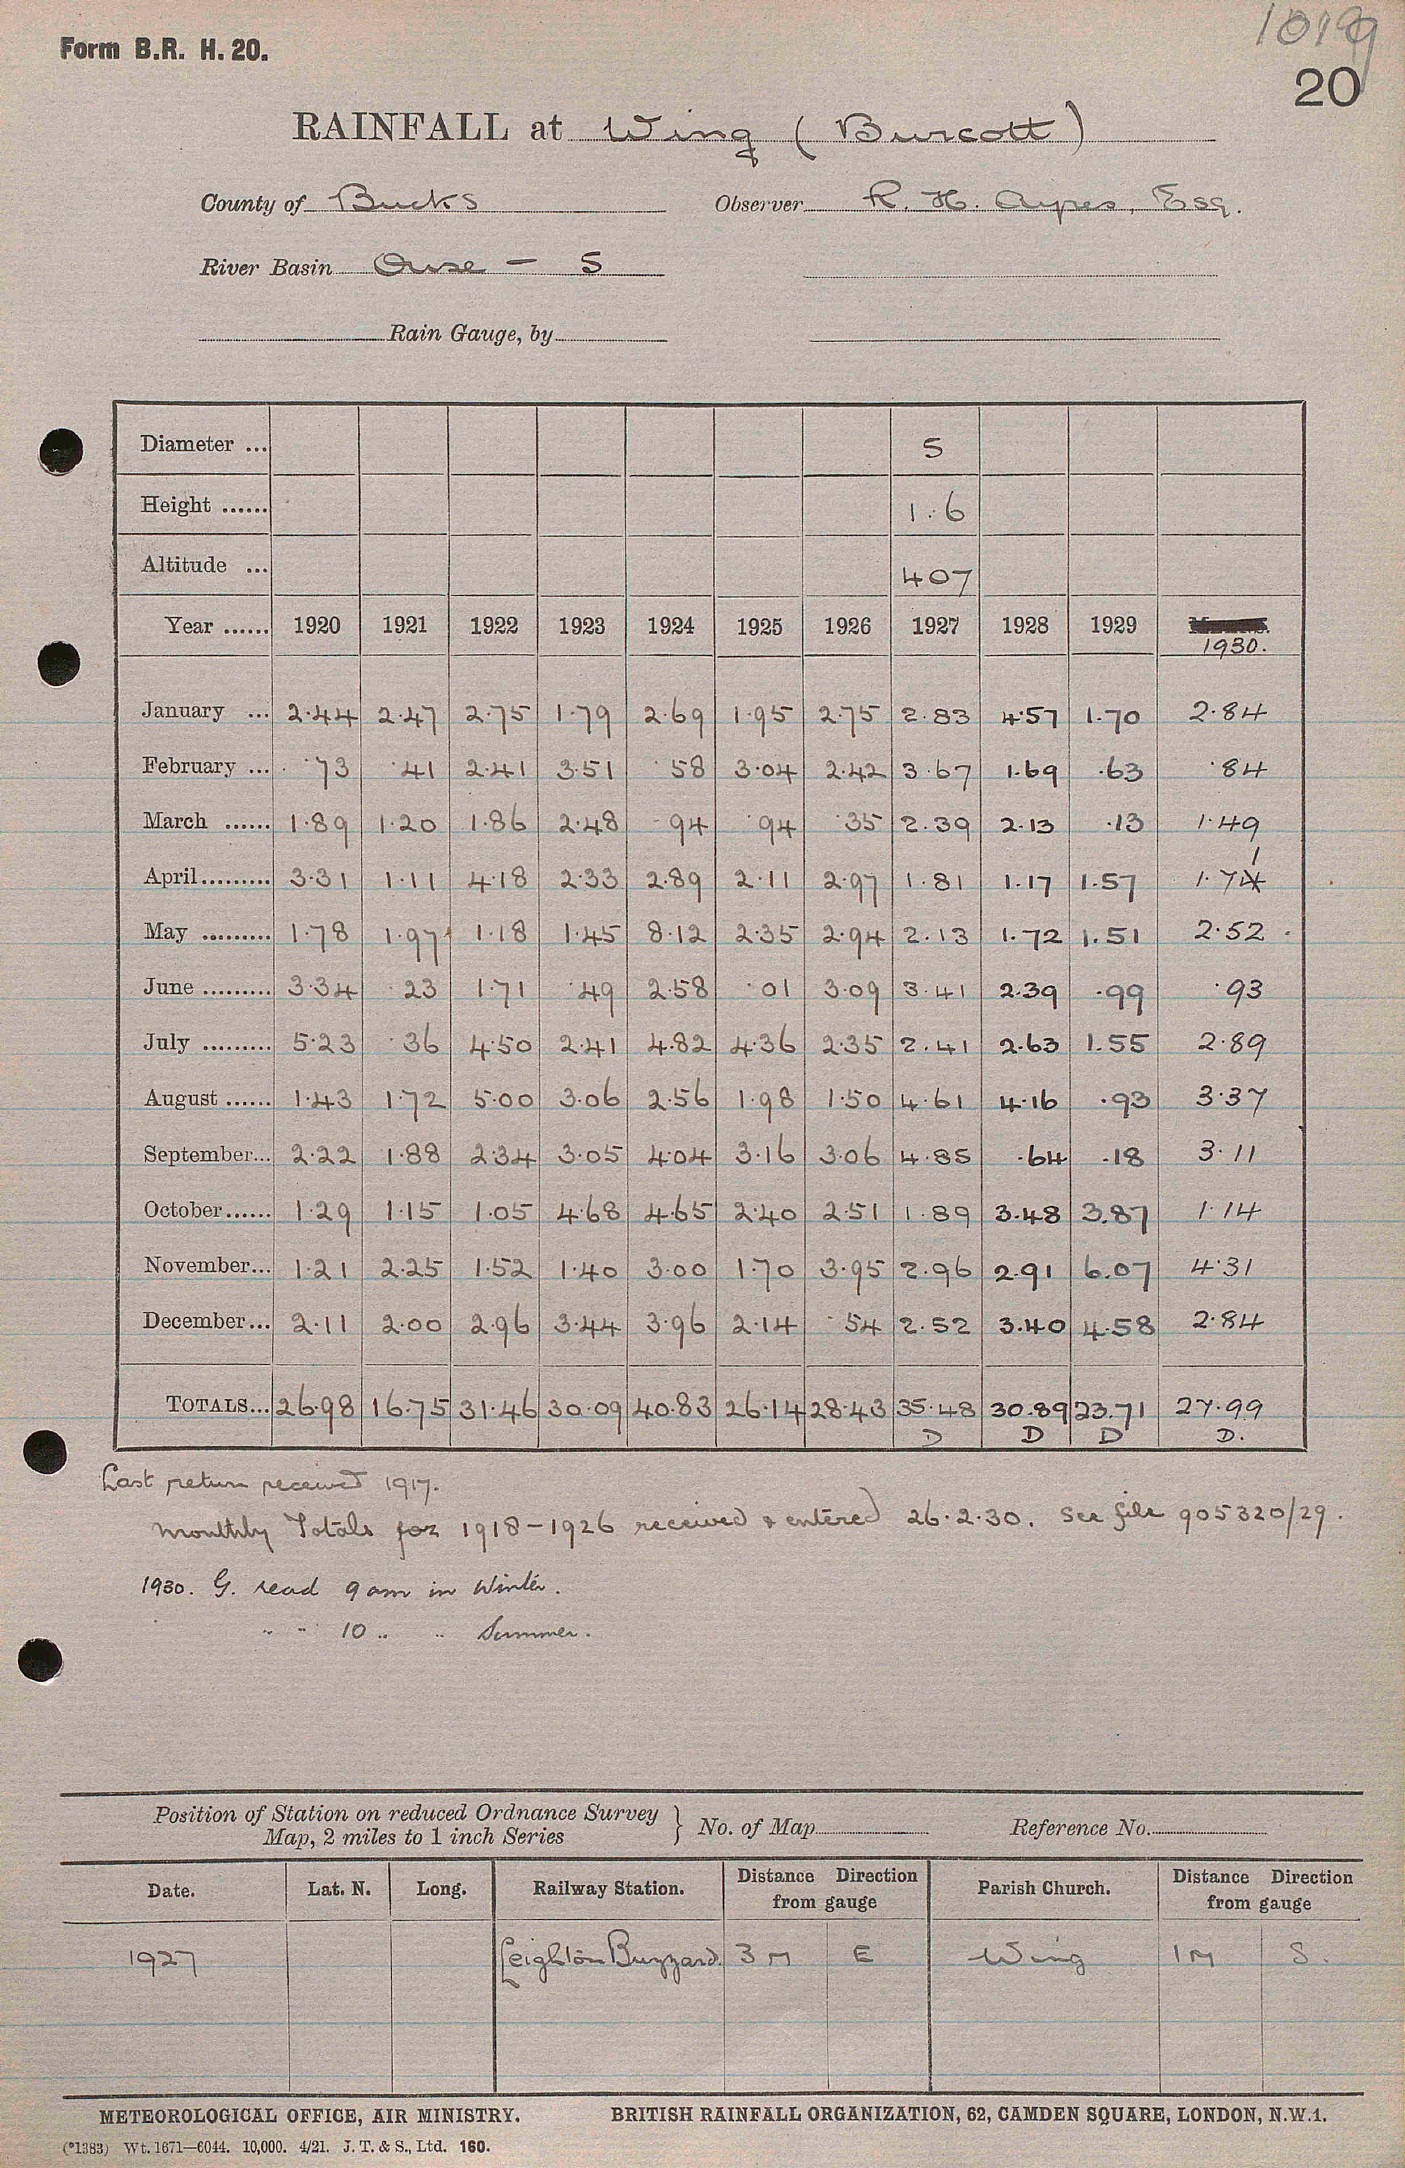 Form B.R. H. 20.
20
RAINFALL at Wing (Burcott)
County of Bucks Observer R. H. Ayres, Esq.
River Basin Ouse - 5
Rain Gauge, by
Diameter ... 5
Height ...... 1.6
Altitude ... 407
Year ...... 1920 1921 1922 1923 1924 1925 1926 1927 1928 1929 1930.
January ... 2.44 2.47 2.75 1.79 2.69 1.95 2.75 2.83 4.57 1.70 2.84
February ... .73 .41 2.41 3.51 .58 3.04 2.42 3.67 1.69 .63 .84
March ...... 1.89 1.20 1.86 2.48 .94 .94 .35 2.39 2.13 .13 1.49
April......... 3.31 1.11 4.18 2.33 2.89 2.11 2.97 1.81 1.17 1.57 1.71
May ......... 1.78 1.97 1.18 1.45 8.12 2.35 2.94 2.13 1.72 1.51 2.52
June ......... 3.34 .23 1.71 .49 2.58 .01 3.09 3.41 2.39 .99 .93
July ......... 5.23 .36 4.50 2.41 4.82 4.36 2.35 2.41 2.63 1.55 2.89
August ...... 1.43 1.72 5.00 3.06 2.56 1.98 1.50 4.61 4.16 .93 3.37
September... 2.22 1.88 2.34 3.05 4.04 3.16 3.06 4.85 .64 .18 3.11
October...... 1.29 1.15 1.05 4.68 4.65 2.40 2.51 1.89 3.48 3.87 1.14
November... 1.21 2.25 1.52 1.40 3.00 1.70 3.95 2.96 2.91 6.07 4.31
December... 2.11 2.00 2.96 3.44 3.96 2.14 .54 2.52 3.40 4.58 2.84
TOTALS... 26.98 16.75 31.46 30.09 40.83 26.14 28.43 35.48 30.89 23.71 27.99
D D D D.
Last return received 1917.
Monthly Totals for 1918-1926 received & entered 26.2.30. See file 905320/29.
1930. G. read 9 am in Winter.
" " 10 " " Summer.
Position of Station on reduced Ordnance Survey
Map, 2 miles to 1 inch Series } No. of Map Reference No.
Date. Lat. N. Long. Railway Station. Distance Direction from gauge Parish Church. Distance Direction from gauge
1927 Leighton Buzzard. 3 M E Wing 1 M S.
METEOROLOGICAL OFFICE, AIR MINISTRY. BRITISH RAINFALL ORGANIZATION, 62, CAMDEN SQUARE, LONDON, N.W.1.
(*1383) Wt. 1671—6044. 10,000. 4/21. J. T. & S., Ltd. 160.